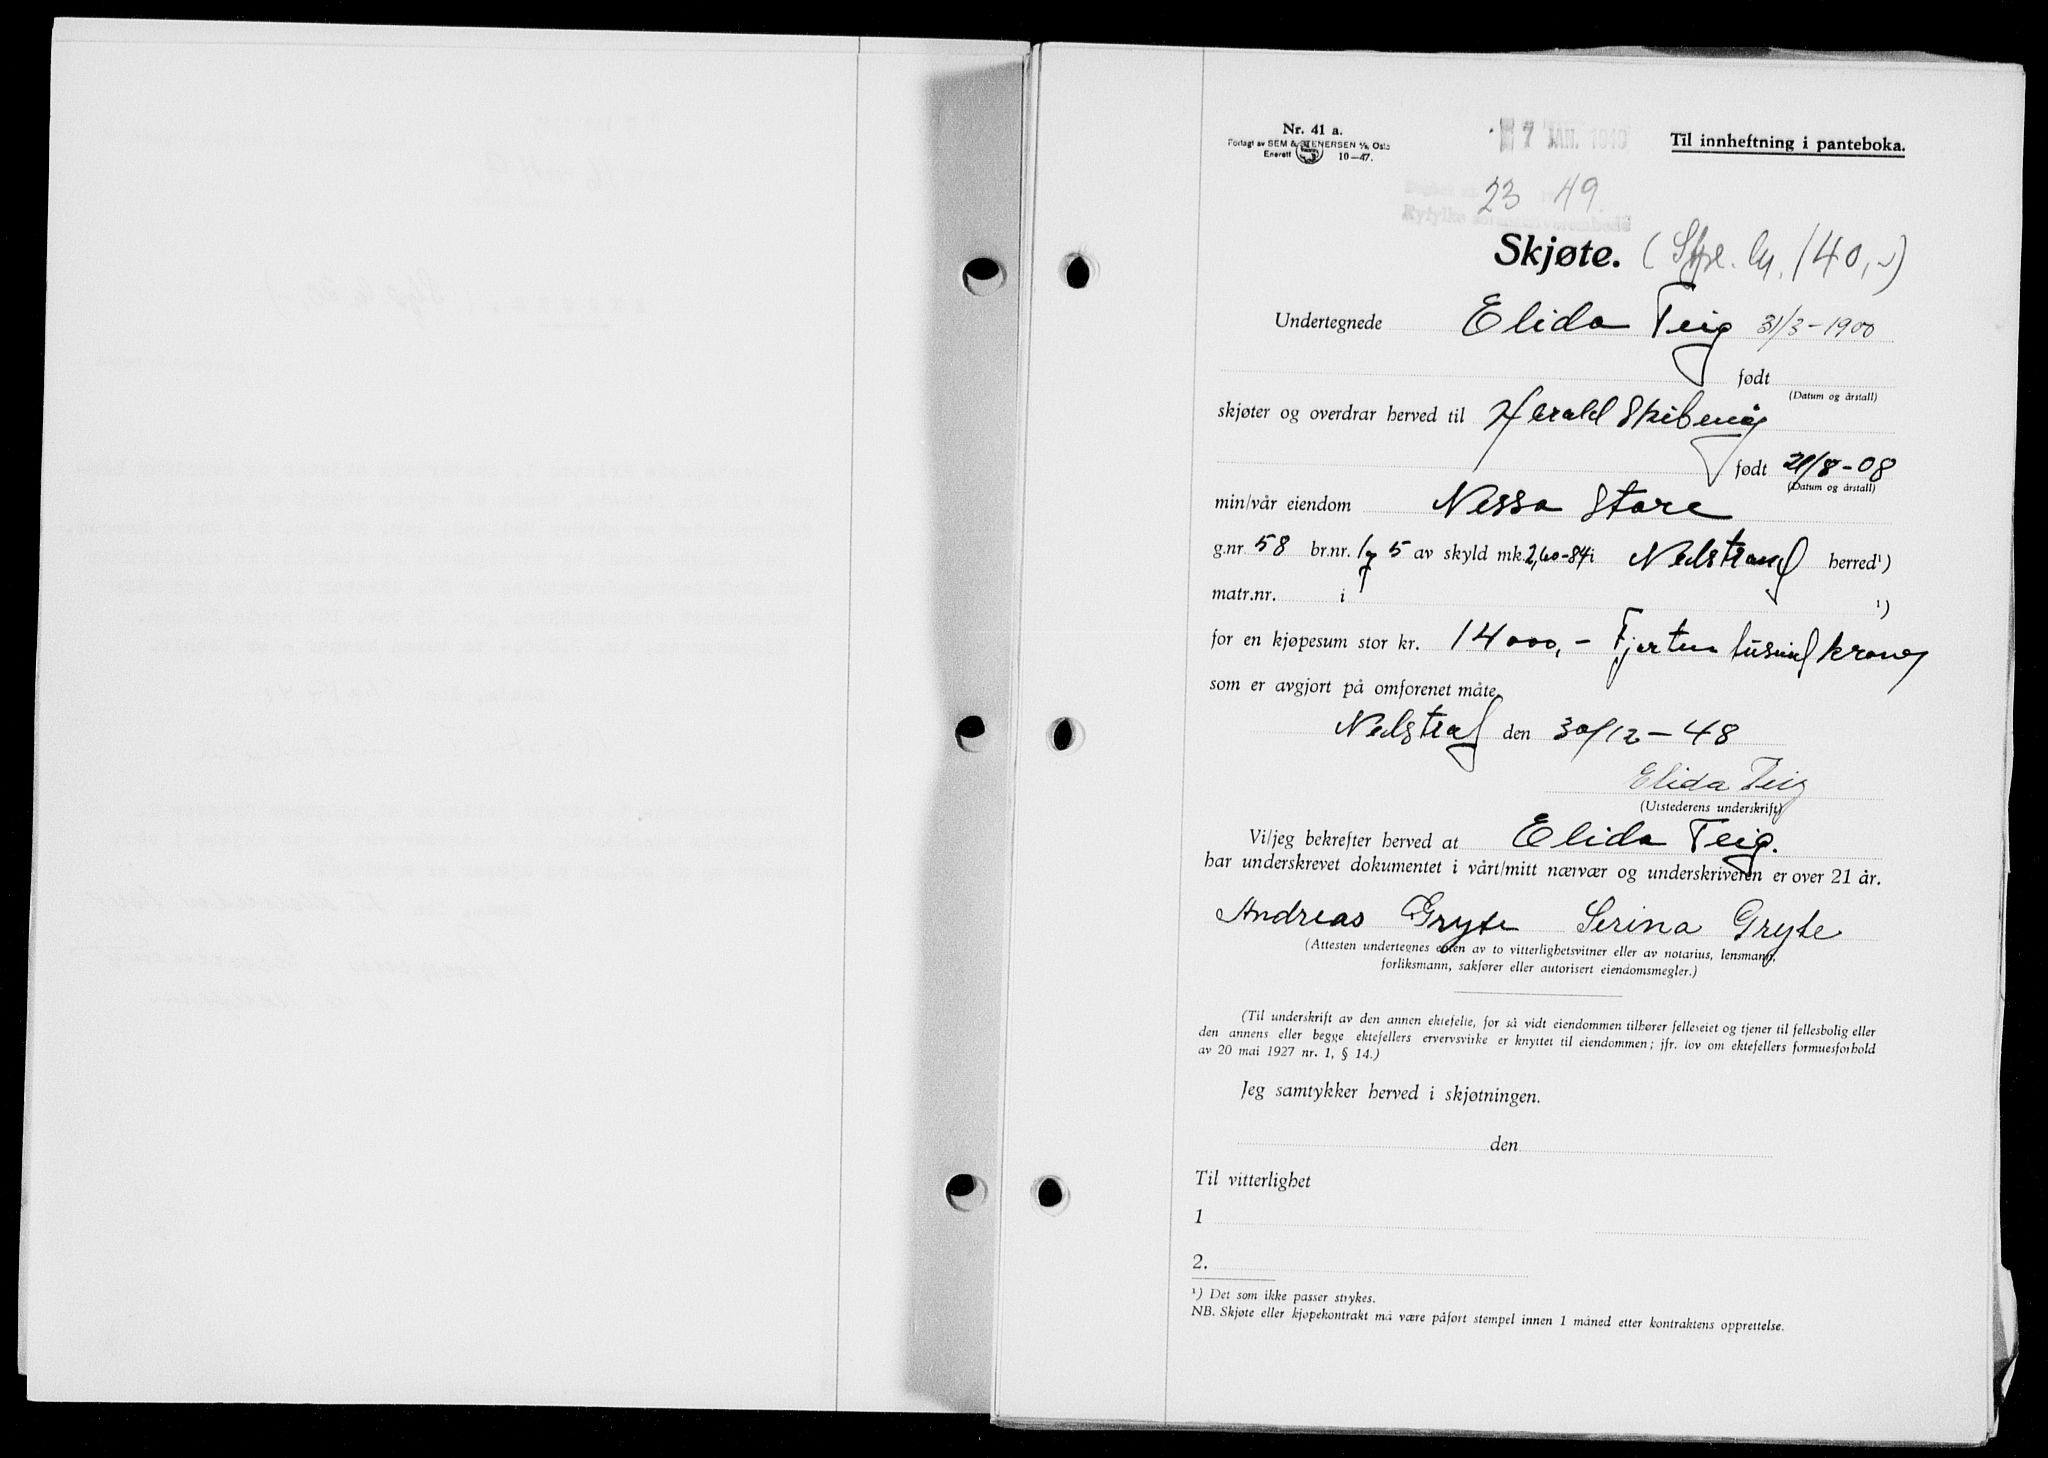 Nr. 41 a.
Forlagt av SEM & STENERSEN A/S, Oslo
Enerett 10—47.
7 JAN. 1949
Til innheftning i panteboka.
23 49
Ryfylke sorenskriverembede
Skjøte. (Stpl. kr. 140,-)
Undertegnede Elida Teig 31/3-1900
født
(Datum og årstall)
skjøter og overdrar herved til Harald
født 21/8-08
(Datum og årstall)
min/vår eiendom Nessa Store
g.nr. 58 br.nr. 1 og 5 av skyld mk. 2,60-84 i Nedstrand herred¹)
matr.nr. i ¹)
for en kjøpesum stor kr. 14000,- Fjorten tusind kroner
som er avgjort på omforenet måte.
Nedstrand den 30/12-48
Elida Teig
(Utstederens underskrift)
Vi/jeg bekrefter herved at Elida Teig.
har underskrevet dokumentet i vårt/mitt nærvær og underskriveren er over 21 år.
Andreas Gryte Serina Gryte
(Attesten undertegnes enten av to vitterlighetsvitner eller av notarius, lensmann,
forliksmann, sakfører eller autorisert eiendomsmegler.)
(Til underskrift av den annen ektefelle, for så vidt eiendommen tilhører felleseiet og tjener til fellesbolig eller
den annens eller begge ektefellers ervervsvirke er knyttet til eiendommen; jfr. lov om ektefellers formuesforhold
av 20 mai 1927 nr. 1, § 14.)
Jeg samtykker herved i skjøtningen.
den
Til vitterlighet
1
2.
¹) Det som ikke passer strykes.
NB. Skjøte eller kjøpekontrakt må være påført stempel innen 1 måned etter kontraktens opprettelse.